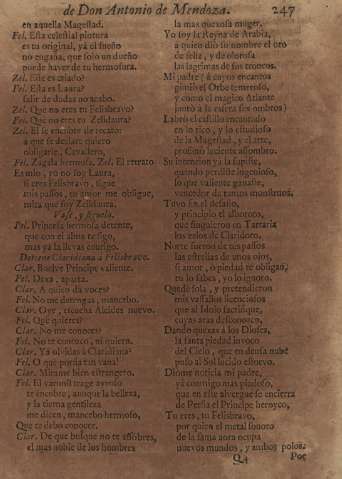 de Don Antonio de Mendoza. 247
en aquella Magestad.
Fel. Esta celestial pintura
es tu original, yà el sueño
no engaña, que solo un dueño
puede haver de tu hermosura.
Zel. Este es criado?
Fel. Esta es Laura?
salir de dudas no acabo.
Zel. Que no eres tu Felisbravo?
Fel. Que no eres tu Zelidaura?
Zel. El
a que se declare quiero
obligarle, Cavallero,
Fel. Zagala hermosa. Zel. El retrato
Es mio, yo no soy Laura,
si eres Felisbravo, sigue
mis passos, tu amor me obligue,
mira que soy Zelidaura.
Vase, y siguela.
Fel. Princesa hermosa detente,
que con el alma te sigo,
mas ya la llevas contigo.
Detiene Claridiana à Felisbravo.
Clar. Buelve Principe valiente.
Fel. Dexa, aparta.
Clar. A quien dà voces?
Fel. No me detengas, mancebo.
Clar. Oye, escucha Alcides nuevo.
Fel. Què quieres?
Clar. No me conoces?
Fel. No te conozco, ni quiero.
Clar. Yà olvidas à Claridiana?
Fel. O què porfia tan vana!
Clar. Mirame bien estrangero.
Fel. El varonil trage ayroso
te encubre, aunque la belleza,
y la suma gentileza
me dicen, mancebo hermoso,
Que te debo conocer.
Clar. De que busque no te assombres,
el mas noble de los hombres
la mas quexosa muger.
Yo soy la Reyna de Arabia,
a quien diò su nombre el oro
de feliz, y de olorosa
las lagrimas de sus troncos.
Mi padre (à cuyos encantos
gimiò el Orbe temeroso,
y como el magico Atlante
juntò à la esfera sus ombros)
Labrò el castillo encantado
en lo rico, y lo estudioso
de la Magestad, y el arte,
prodigio luciente assombro.
Su intencion yà la supiste,
quando perdiste ingenioso,
lo que valiente ganaste,
vencedor de tantos monstruos.
Tuvo fin el desafio,
y principio el alboroto,
que fingieron en Tartaria
los zelos de Claridoro.
Norte fueron de tus passos
las estrellas de unos ojos,
si amor, ò piedad te obligan,
tu lo sabes, yo lo ignoro.
Quedè sola, y pretendieron
mis vassallos licenciosos
que al Idolo sacrifique,
cuyas aras desconozco,
Dando quexas à los Dioses,
la santa piedad invoco
del Cielo, que en densa nube
puso al Sol lucido estorvo.
Diòme noticia mi padre,
yà conmigo mas piadoso,
que en este alvergue se encierra
de Persia el Principe heroyco,
Tu eres, tu Felisbravo,
por quien el metal sonoro
de la fama aora ocupa
nuevos mundos, y ambos polos.
Q4 Por